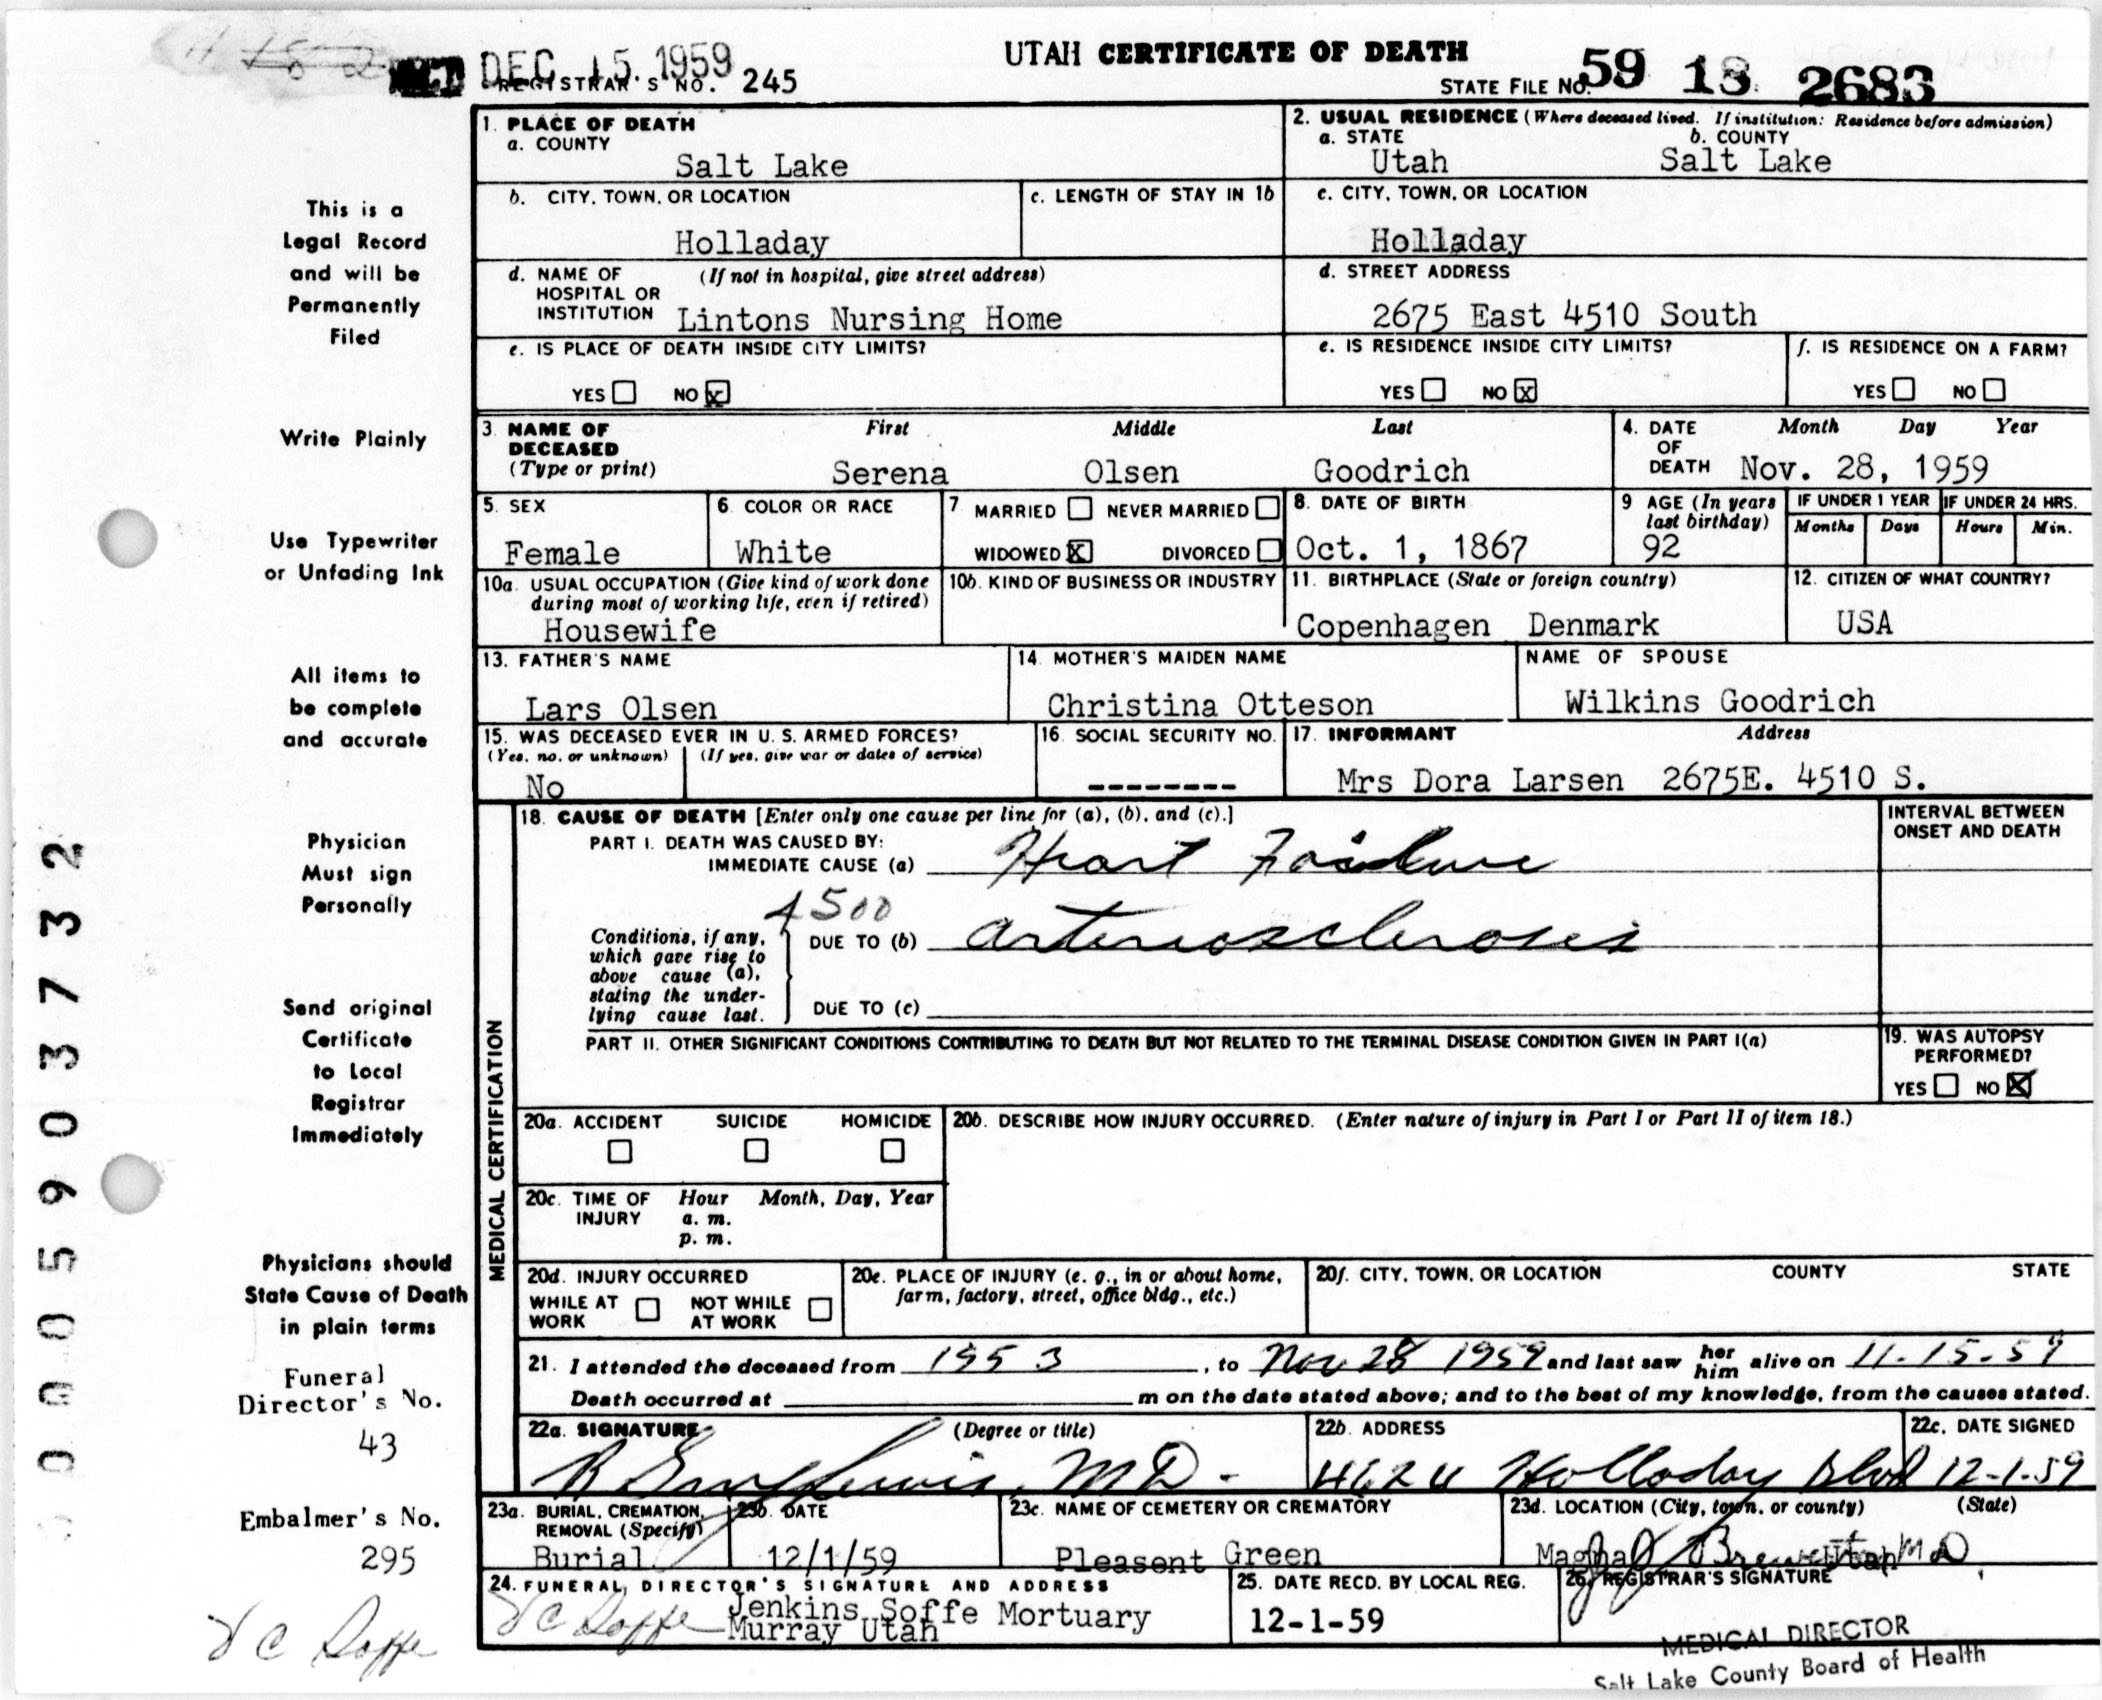 DEC 15. 1959
UTAH CERTIFICATE OF DEATH
REGISTRAR'S NO. 245
STATE FILE NO. 59 18 2683
1. PLACE OF DEATH
a. COUNTY
Salt Lake
2. USUAL RESIDENCE (Where deceased lived. If institution: Residence before admission)
a. STATE b. COUNTY
Utah Salt Lake
b. CITY, TOWN, OR LOCATION
Holladay
c. LENGTH OF STAY IN 1b
c. CITY, TOWN, OR LOCATION
Holladay
d. NAME OF HOSPITAL OR INSTITUTION (If not in hospital, give street address)
Lintons Nursing Home
d. STREET ADDRESS
2675 East 4510 South
e. IS PLACE OF DEATH INSIDE CITY LIMITS?
YES NO X
e. IS RESIDENCE INSIDE CITY LIMITS?
YES NO X
f. IS RESIDENCE ON A FARM?
YES NO
3. NAME OF DECEASED (Type or print)
First Middle Last
Serena Olsen Goodrich
4. DATE OF DEATH
Month Day Year
Nov. 28, 1959
5. SEX
Female
6. COLOR OR RACE
White
7. MARRIED NEVER MARRIED
WIDOWED X DIVORCED
8. DATE OF BIRTH
Oct. 1, 1867
9 AGE (In years last birthday)
92
IF UNDER 1 YEAR
Months Days
IF UNDER 24 HRS.
Hours Min.
10a. USUAL OCCUPATION (Give kind of work done during most of working life, even if retired)
Housewife
10b. KIND OF BUSINESS OR INDUSTRY
11. BIRTHPLACE (State or foreign country)
Copenhagen Denmark
12. CITIZEN OF WHAT COUNTRY?
USA
13. FATHER'S NAME
Lars Olsen
14. MOTHER'S MAIDEN NAME
Christina Otteson
NAME OF SPOUSE
Wilkins Goodrich
15. WAS DECEASED EVER IN U. S. ARMED FORCES?
(Yes, no, or unknown) (If yes, give war or dates of service)
No
16. SOCIAL SECURITY NO.
--------
17. INFORMANT Address
Mrs Dora Larsen 2675E. 4510 S.
MEDICAL CERTIFICATION
18. CAUSE OF DEATH [Enter only one cause per line for (a), (b), and (c).]
INTERVAL BETWEEN ONSET AND DEATH
PART I. DEATH WAS CAUSED BY:
IMMEDIATE CAUSE (a) Heart Failure
4500
Conditions, if any, which gave rise to above cause (a), stating the underlying cause last.
DUE TO (b) arteriosclerosis
DUE TO (c)
PART II. OTHER SIGNIFICANT CONDITIONS CONTRIBUTING TO DEATH BUT NOT RELATED TO THE TERMINAL DISEASE CONDITION GIVEN IN PART I(a)
19. WAS AUTOPSY PERFORMED?
YES NO X
20a. ACCIDENT SUICIDE HOMICIDE
20b. DESCRIBE HOW INJURY OCCURRED. (Enter nature of injury in Part I or Part II of item 18.)
20c. TIME OF INJURY Hour Month, Day, Year
a. m.
p. m.
20d. INJURY OCCURRED
WHILE AT WORK NOT WHILE AT WORK
20e. PLACE OF INJURY (e. g., in or about home, farm, factory, street, office bldg., etc.)
20f. CITY, TOWN, OR LOCATION COUNTY STATE
21. I attended the deceased from 1953, to Nov 28 1959 and last saw her him alive on 11-15-59
Death occurred at m on the date stated above; and to the best of my knowledge, from the causes stated.
22a. SIGNATURE (Degree or title)
M D.
22b. ADDRESS
4624 Holladay Blvd
22c. DATE SIGNED
12-1-59
23a. BURIAL, CREMATION, REMOVAL (Specify)
Burial
23b. DATE
12/1/59
23c. NAME OF CEMETERY OR CREMATORY
Pleasent Green
23d. LOCATION (City, town, or county) (State)
Magna Utah
24. FUNERAL DIRECTOR'S SIGNATURE AND ADDRESS
Jenkins Soffe Mortuary
Murray Utah
25. DATE RECD. BY LOCAL REG.
12-1-59
26. REGISTRAR'S SIGNATURE
MD
MEDICAL DIRECTOR
Salt Lake County Board of Health
This is a
Legal Record
and will be
Permanently
Filed
Write Plainly
Use Typewriter
or Unfading Ink
All items to
be complete
and accurate
Physician
Must sign
Personally
Send original
Certificate
to Local
Registrar
Immediately
Physicians should
State Cause of Death
in plain terms
Funeral
Director's No.
43
Embalmer's No.
295
Soffe
0000590 3732